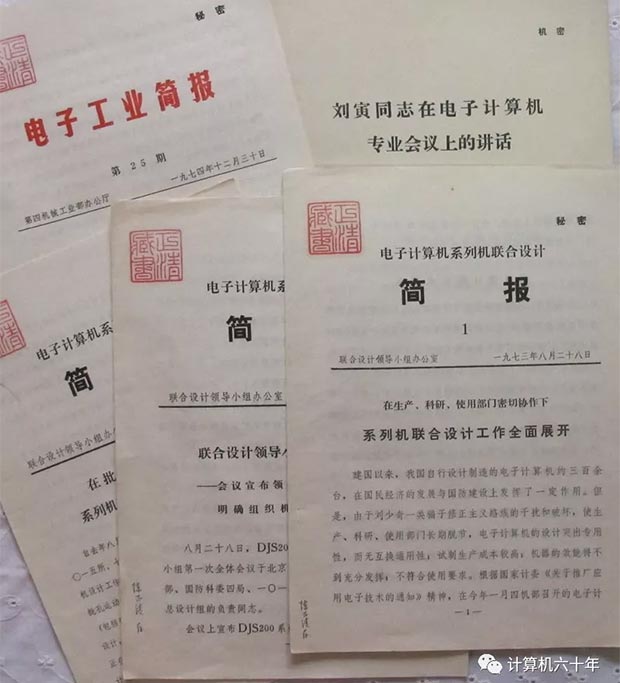 秘密
电子工业简报
第25期
第四机械工业部办公厅
一九七四年十二月三十日
机密
刘寅同志在电子计算机
专业会议上的讲话
电子计算机系
简
在批
系列机
电子计算机系
简
联合设计领导小组办公室
联合设计领导小
——会议宣布领
明确组织机
八月二十八日，DJS200
小组第一次全体会议于北京
部、国防科委四局、一〇一
总设计组的负责同志。
会议上宣布DJS200系
正清藏书
秘密
电子计算机系列机联合设计
简报
1
联合设计领导小组办公室
一九七三年八月二十八日
在生产、科研、使用部门密切协作下
系列机联合设计工作全面展开
建国以来，我国自行设计制造的电子计算机约三百余
台，在国民经济的发展与国防建设上发挥了一定作用。但
是，由于刘少奇一类骗子修正主义路线的干扰和破坏，使生
产、科研、使用部门长期脱节，电子计算机的设计突出专用
性，而无互换通用性；试制生产成本较高；机器的效能得不
到充分发挥；不符合使用要求。根据国家计委《关于推广应
用电子技术的通知》精神，在今年一月四机部召开的电子计
—1—
计算机六十年